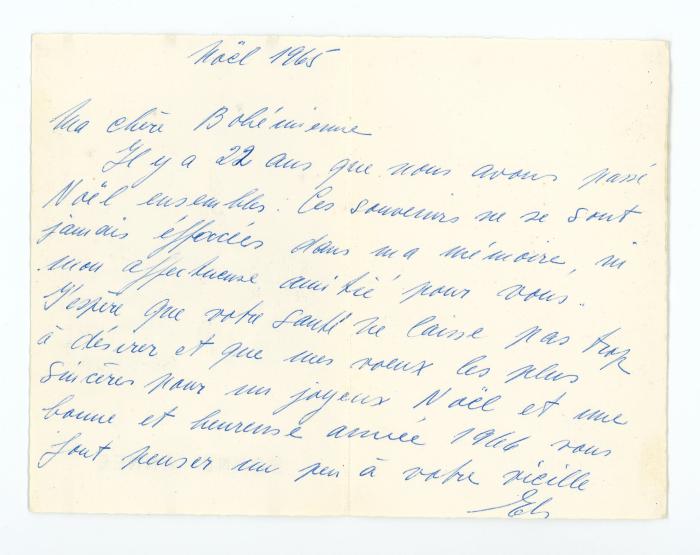 Noël 1965
Ma chère Bohémienne
Il y a 22 ans que nous avons passé
Noël ensembles. Ces souvenirs ne se sont
jamais éffacées dans ma mémoire, ni
mon affectueuse amitié pour vous.
J'espère que votre santé ne laisse pas trop
à désirer et que mes voeux les plus
sincères pour un joyeux Noël et une
bonne et heureuse année 1966 vous
font penser un peu à votre vieille